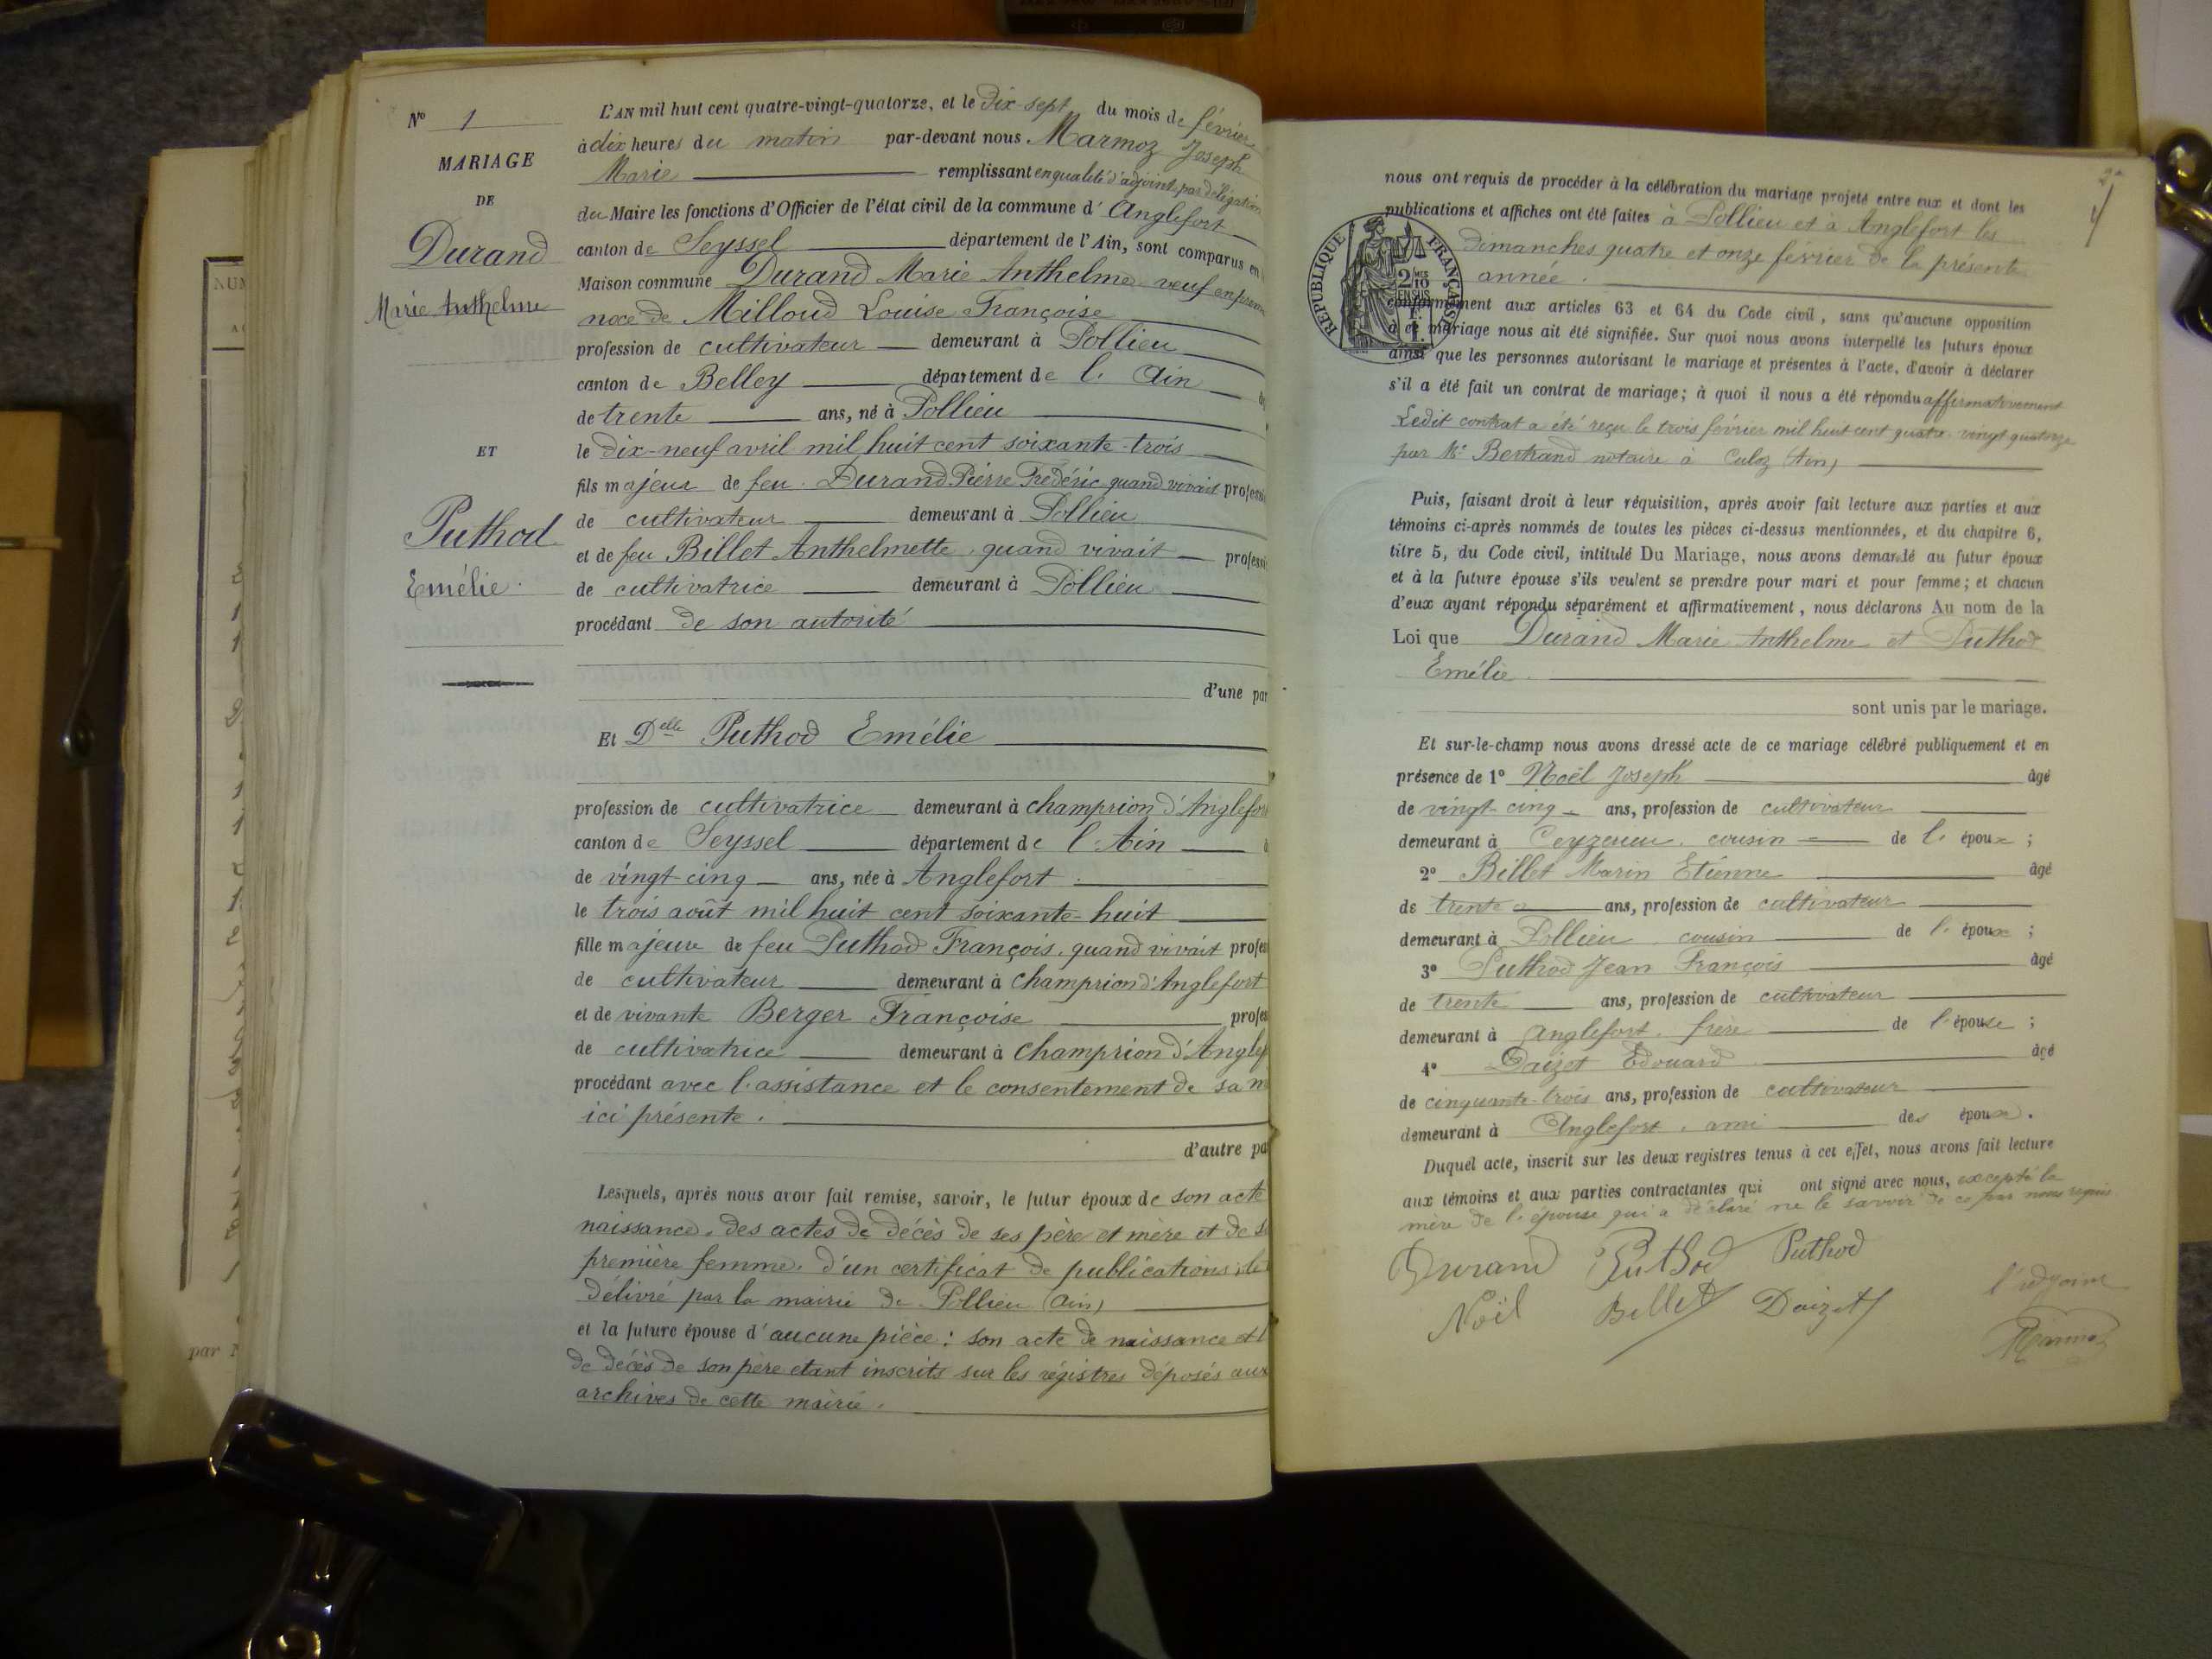 Nº 1
MARIAGE
DE
Durand
Marie Anthelme
ET
Puthod
Emélie.
L'AN mil huit cent quatre-vingt-quatorze, et le dix-sept du mois de février
à dix heures du matin par-devant nous Marmoz Joseph
Marie remplissant en qualité d'adjoint, par délégation
du Maire les fonctions d'Officier de l'état civil de la commune d'Anglefort
canton de Seyssel département de l'Ain, sont comparus en
Maison commune Durand Marie Anthelme veuf en prem
noce de Milloud Louise Françoise
profession de cultivateur demeurant à Pollieu
canton de Belley département de l'Ain
de trente ans, né à Pollieu
le dix-neuf avril mil huit cent soixante-trois
fils majeur de feu Durand Pierre Frédéric quand vivait profess
de cultivateur demeurant à Pollieu
et de feu Billet Anthelmette, quand vivait professi
de cultivatrice demeurant à Pollieu
procédant de son autorité
d'une par
Et Delle Puthod Emélie
profession de cultivatrice demeurant à Champrion d'Anglefort
canton de Seyssel département de l'Ain
de vingt-cinq ans, née à Anglefort.
le trois août mil huit cent soixante-huit
fille majeure de feu Puthod François, quand vivait profes
de cultivateur demeurant à Champrion d'Anglefort
et de vivante Berger Françoise profes
de cultivatrice demeurant à Champrion d'Anglef
procédant avec l'assistance et le consentement de sa m
ici présente.
d'autre pa
Lesquels, après nous avoir fait remise, savoir, le futur époux de son acte
naissance, des actes de décès de ses père et mère et de s
première femme, d'un certificat de publications
délivré par la mairie de Pollieu (Ain)
et la future épouse d'aucune pièce: son acte de naissance et
de décès de son père etant inscrits sur les régistres déposés aux
archives de cette mairie.
2
nous ont requis de procéder à la célébration du mariage projeté entre eux et dont les
publications et affiches ont été faites à Pollieu et à Anglefort les
dimanches quatre et onze février de la présente
année.
RÉPUBLIQUE FRANÇAISE
2/10
conformément aux articles 63 et 64 du Code civil, sans qu'aucune opposition
à ce mariage nous ait été signifiée. Sur quoi nous avons interpellé les futurs époux
ainsi que les personnes autorisant le mariage et présentes à l'acte, d'avoir à déclarer
s'il a été fait un contrat de mariage; à quoi il nous a été répondu affirmativement
Ledit contrat a été reçu le trois février mil huit cent quatre-vingt quatorze
par Me Bertrand notaire à Culoz (Ain)
Puis, faisant droit à leur réquisition, après avoir fait lecture aux parties et aux
témoins ci-après nommés de toutes les pièces ci-dessus mentionnées, et du chapitre 6,
titre 5, du Code civil, intitulé Du Mariage, nous avons demandé au futur époux
et à la future épouse s'ils veulent se prendre pour mari et pour femme; et chacun
d'eux ayant répondu séparément et affirmativement, nous déclarons Au nom de la
Loi que Durand Marie Anthelme et Puthod
Emélie
sont unis par le mariage.
Et sur-le-champ nous avons dressé acte de ce mariage célébré publiquement et en
présence de 1º Noël Joseph âgé
de vingt-cinq ans, profession de cultivateur
demeurant à Ceyzerieu, cousin de l'époux;
2º Billet Marin Etienne âgé
de trente ans, profession de cultivateur
demeurant à Pollieu cousin de l'époux;
3º Puthod Jean François âgé
de trente ans, profession de cultivateur
demeurant à Anglefort, frère de l'épouse;
4º Daizet Edouard âgé
de cinquante-trois ans, profession de cultivateur
demeurant à Anglefort, ami des époux.
Duquel acte, inscrit sur les deux registres tenus à cet effet, nous avons fait lecture
aux témoins et aux parties contractantes qui ont signé avec nous, excepté la
mère de l'épouse qui a déclaré ne le savoir de ce par nous requis
Durand Puthod Puthod
Noël Billet Daizet
l'adjoint
Marmoz
NUM
par